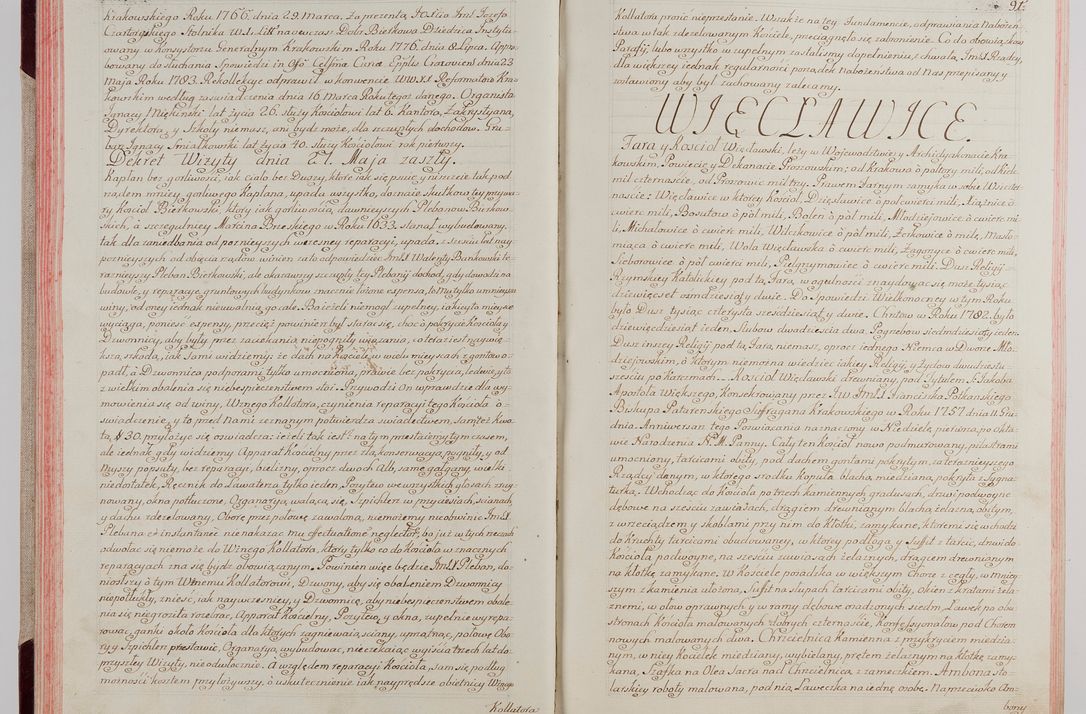 Krakowskiego Roku 1766. dnia 29. Marca, za prezentą Jaśnie Imć Jozefa
Czartoryskiego Stolnika W. X. Litt na ow czas Dobr Bieńkowka Dziedzica Instytu-
owany w Konsystorzu Generalnym Krakowskim Roku 1776. dnia 8. Lipca. Appro-
bowany do słuchania Spowiedzi in
Maja Roku 1783. Rekollekcye odprawił w Konwencie WW. XX. Reformatow Kra-
kowskim według zaswiadczenia dnia 16. Marca Roku tegoż danego. Organista
Ignacy Miękinski lat życia 26. służy Kościołowi lat 6. Kantora, Zakrystyana,
Dyrektora, y Szkoły niemasz, ani bydz może, dla szczupłych dochodow. Gra-
barz Ignacy Smiałkowski lat życia 40. służy Kościołowi rok pierwszy.
Dekret Wizyty dnia 21. Maja zaszły.
Kapłan bez gorliwości, jak ciało bez Duszy, które jak się psuie, y niszczie, tak pod
nie gorliwego Kapłana, upada wszystko, doznaie skutkow tey przywa-
ry Kościoł Bierkowski, ktory jak gorliwością dawnieyszych Plebanow Bierkow-
skich, a szczegulniey Marcina Breskiego w Roku 1633. stanął wybudowany,
tak dla zaniedbania od poznieyszych wczesney reparacyi, upada, z sześciu lat nay-
poznieyszych od objęcia rządow winien za to odpowiedzieć Imć X. Walenty Bankowski te-
razniejszy Pleban Bierkowski, ale okazawszy szczupły tey Plebanii dochod, gdy dowodzi na
budowle, y reparacye gruntowych budynkow znacznie łożone expensa, to ma tylko umnieysza
winy, od oney jednak nieuwalnia go cale. Bo jeżeli niemogł zupełney, jak czyta mieysce
wyciąga, ponieść expensy, przecież powinien był starać się, choć o pokrycie Kościoła y
Dzwonnicy, aby były przez zaciekania niepogniły wiązania, co teraz jest naywię-
ksza szkoda, jak sami widziemy: że dach na Kościele w wielu mieyscach z gontow o-
padł, a Dzwonnica podporami tylko umocniona, prawie bez pokrycia, ledwie, y to
z wielkim obalenia się niebezpieczenstwem stoi. Przywodzi On wprawdzie dla wy-
mowienia się od winy, Wznego Kollatora, czynienia reparacyi tego Kościoła o-
swiadczenie, y to przed Nami zeznanym potwierdza swiadectwem, sam też kwo-
tą, # 30. przyłożyc się oswiadcza: jeżeli tak jest? na tym przestaiemy tym czasem,
ale jednak gdy widziemy Apparat Kościelny przez złą konserwacyą pognity, y od
Myszy popsuty, bez reparacyi, bielizny, oprocz dwoch Alb, same gałgany, wielki
niedostatek, Ręcznik do Lawaterza tylko jeden, Pozytyw we wszystkich głosach zruy-
nowany, okna potłuczone, Organaryą walącą się, Spichlerz w przyciesiach, scianach
y dachu zdezelowany, Oborę przez połowę zawaloną, niemożemy nieobwinić Imć X.
Plebana et instantanee nie nakazac mu effectuationem neglectorum, bo już w tych rzeczach
odwołac się niemoże do Wznego Kollatora, ktory tylko co do Kościoła w znacznych
reparacyach zna się bydz obowiązanym. Powinien więc będzie Imć X. Pleban, do-
niosłszy o tym Wznemu Kollatorowi, Dzwony, aby się obaleniem Dzwonnicy
niepotłukły, znieść, jak naywczesniey, y Dzwonnicę, aby niebespieczenstwem obale-
nia się niegroziła rozebrac, Apparat Kościelny, Pozytyw, y okna, zupełnie wyrepa-
rowac, ganki około Kościoła dla których zagniewaią sciany, uprzątnąc, połowę Obo-
ry y Spichlerz przestawic, Organaryą, wybudowac, nieczekaiąc wyjścia trzech lat do
przyszłey Wizyty, nieodwłocznie. A względem reparacyi Kościoła, sam się podług
możności kosztem przyłożywszy, o uskutecznienie jak nayprędsze obietnicy Wznego
Kollatora
91.
Kollatora prosić nieprzestanie. Wszakże na tey fundamencie, odprawiania Nabożeń-
stwa w tak zdezelowanym Kościele, przeciągnęło się zabronienie. Co do obowiązkow
Parafij, lubo wszystko w zupełnym zastalismy dopełnieniu, z chwałą Imć X. Rządcy,
dla większey jednak regularności porządek Nabożenstwa od Nas przepisany y
zostawiony aby był zachowany zalecamy.
WIĘCŁAWICE.
Fara y Kościoł Więcławski, leży w Wojewodztwie y Archidyakonacie Kra-
kowskim, Powiecie y Dekanacie Proszowskim; od Krakowa o połtory mili, od Kielc
mil czternaście, od Proszowic mil trzy. Prawem Farnym zamyka w sobie Wsi czter-
naście: Więcławice w ktorey Kościoł, Dziekławice o poł cwierci mili, Xiążnice o
cwierć mili, Bosutow o poł mili, Bolen o poł mili, Młodziejowice o cwierć mi-
li, Michałowice o cwierć mili, Wilczkowice o poł mili, Zerkowice o milę, Masło-
miąca o cwierć mili, Wola Więcławska o cwierć mili, Zagaye o cwierć mili,
Sieborowice o poł cwierci mili, Pielgrzymowice o cwierć mili. Dusz Religij
Rzymskiey Katolickiey pod tą Farą, w ogulności znayduiąc się może tysiąc
dziewięcset osmdziesiąt y dwie. Do Spowiedzi Wielkonocney w tym Roku
było Dusz tysiąc czterysta szescdziesiąt y dwie. Chrztow w Roku 1782. było
dziewięcdziesiąt jeden, Slubow dwadziescia dwa. Pogrzebow siedmdziesiąt jeden.
Dusz inszey Religij pod tą Farą, niemasz, oprocz jednego Niemca w Dworze Mło-
dziejowskim, o ktorym niemożna wiedziec jakiey Religij, y Żydow dwudziestu
sześciu po Karczmach. Kościoł Więcławski drewniany, pod Tytułem S. Jakoba
Apostoła Większego, Konsekrowany przez s.w. Imć X. Franciszka Potkanskiego
Biskupa Patarenskiego Suffragana Krakowskiego w Roku 1757. dnia 11. Gru-
dnia. Anniwersarz tego Poswiącania naznaczony w Niedzielę, pierwszą po okta-
wie Narodzenia N. M. Panny. Cały ten Kościoł nowo podmurowany, pilastrami
umocniony, tarcicami obity, pod dachem gontami pokrytym, za teraznieyszego
Rządcy danym, w ktorego srodku Kopuła blachą miedzianą pokryta z Sygna-
turką. Wchodząc do Kościoła po trzech kamiennych gradusach, drzwi podwoyne
dębowe na szesciu zawiasach, drągiem drewnianym blachą żelazną obitym,
z wrzeciądzem y skoblami przy nim do kłotki, zamykane, ktoremi się wchodzi
do Kruchty tarcicami obudowaney, w ktorey podłoga, y Suffit z tarcic, drzwi do
Kościoła podwoyne, na szesciu zawiasach żelaznych, drągiem drewnianym
na kłotkę zamykane. W Kościele posadzka w większym Chorze z cegły, w mniey-
szym z kamienia ułożona, Sufit na słupach tarcicami obity, okien z kratami żela-
znemi, w ołow oprawnych y w ramy dębowe osadzonych siedm, Ławek po obu
stronach Kościoła malowanych dobrych czternaście, Konfesjonałow pod Chorem
nowych malowanych dwa. Chrzcielnica kamienna z przykryciem miedzia-
nym, w niey Kociełek miedziany, wybielany, prętem żelaznym na kłotkę zamy-
kana, Szafka na Olea Sacra nad Chrzcielnicą z zameczkiem. Ambona sto-
larskiey roboty malowana, pod nią, Ławeczka na jednę osobę. Naprzeciwko Am-
bony